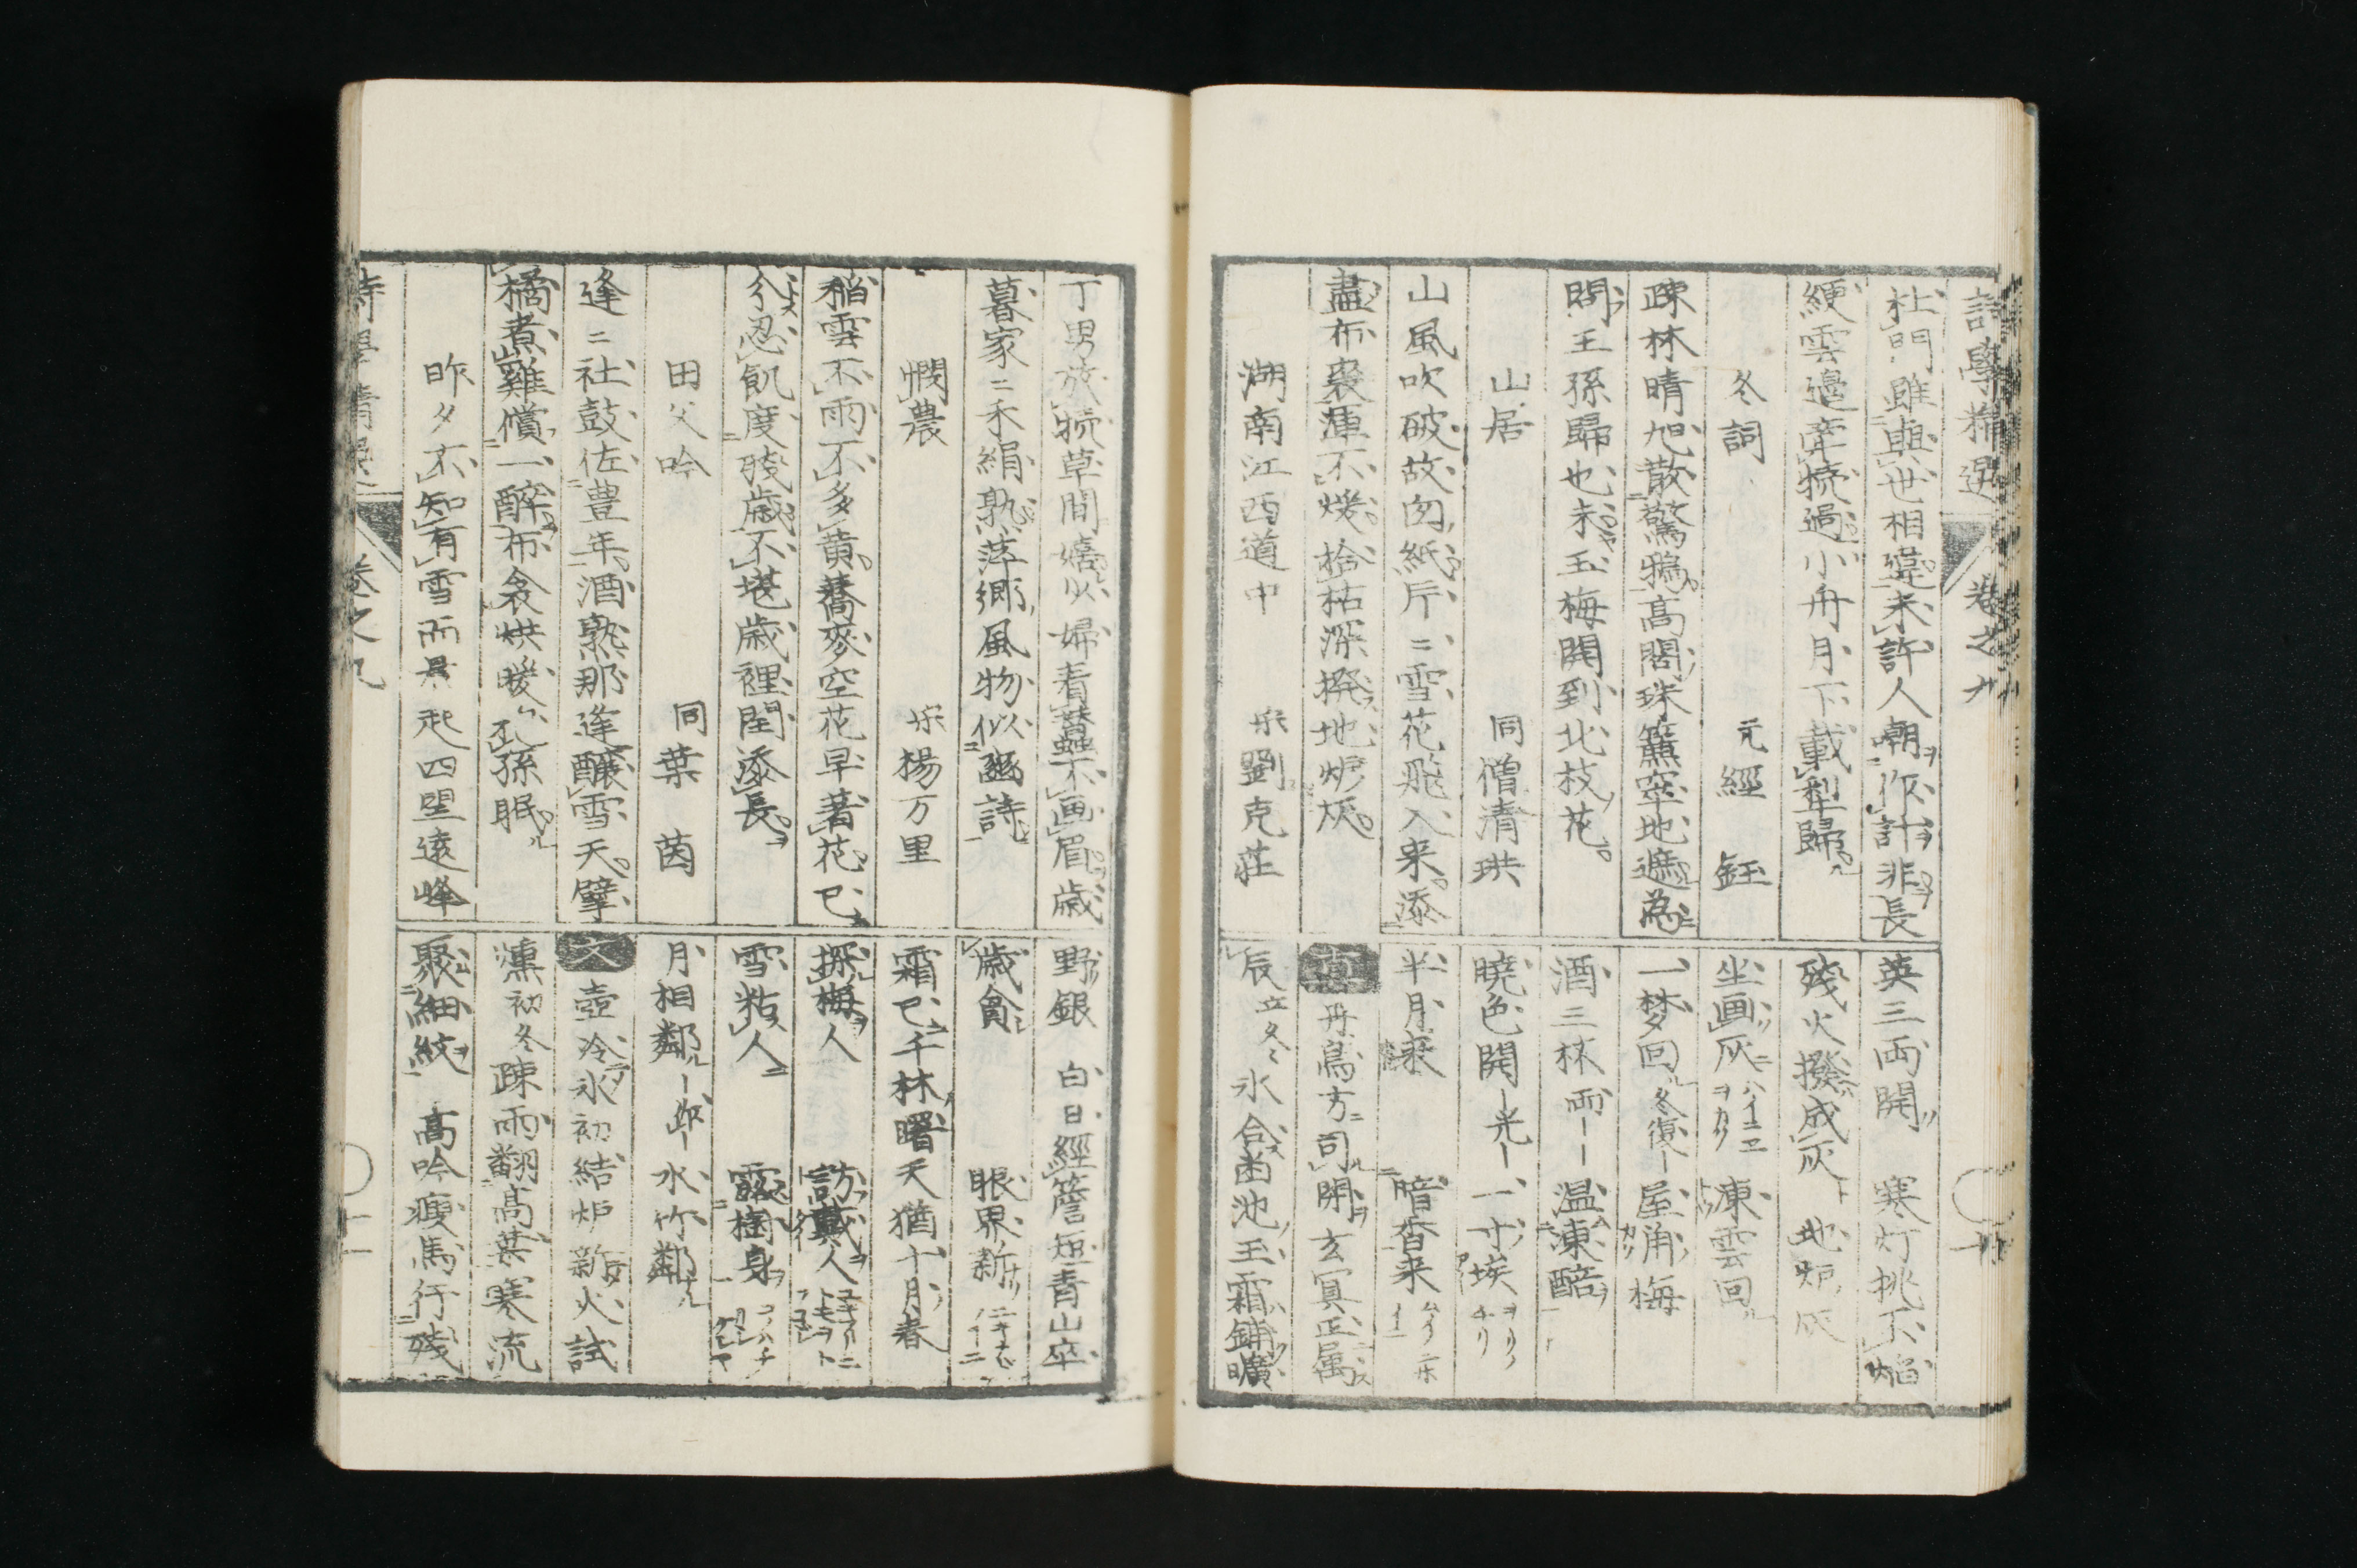 詩學精選 卷之九
杜門雖與世相違未許人嘲作計非長
綆雲邊牽犢過小舟月下載犁歸
冬詞 元 經 鈺
疎林晴旭散驚鴉高閣珠簾窣地遮為
問王孫歸也未玉梅開到北枝花
山居 同 僧清珙
山風吹破故囱紙片〻雪花飛入来添
盡布裘渾不煖拾枯深撥地炉灰
湖南江西道中 宋 劉克荘
英三両開 寒灯挑不焰
残火撥成灰 地炉灰
坐画灰 凍雲回
一梦回 冬復 屋角梅
酒三杯 両 温凍醅
暁色開 光 一寸埃
半月来 暗香来
丹鳥方司開玄冥正属
辰 立冬 氷合凾池玉霜鋪曠
丁男放犢草間嬉少婦看蠶不画眉歳
暮家〻禾絹熟萍郷風物似豳詩
憫農 宋 楊万里
稲雲不雨不多黄蕎麥空花早著花已
分忍飢度残歳不堪歳裡閏添長
田父吟 同 葉 茵
逢〻社鼓佐豊年酒熟那逢釀雪天擘
橘煮雞償一醉布衾烘暖 孫眠
昨夕不知有雪而晨起四望遠峰
野銀 白日經簷短青山卒
歳貪 眼界新
霜已千林曙天猶十月春
探梅人 訪戴人
雪粘人 露樹身
月相鄰 水竹鄰
壺冷氷初結炉新火試
燻 初冬 疎雨翻高葉寒流
聚細紋 高吟瘦馬行残
詩學精選 卷之九 十一